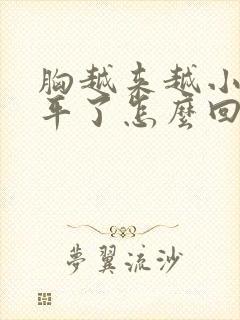 胸越来越小
平了怎麼回
夢翼流沙